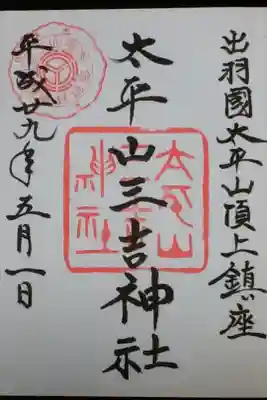 出羽國太平山頂上鎮座
太平山三吉神社
平成廿九年五月一日